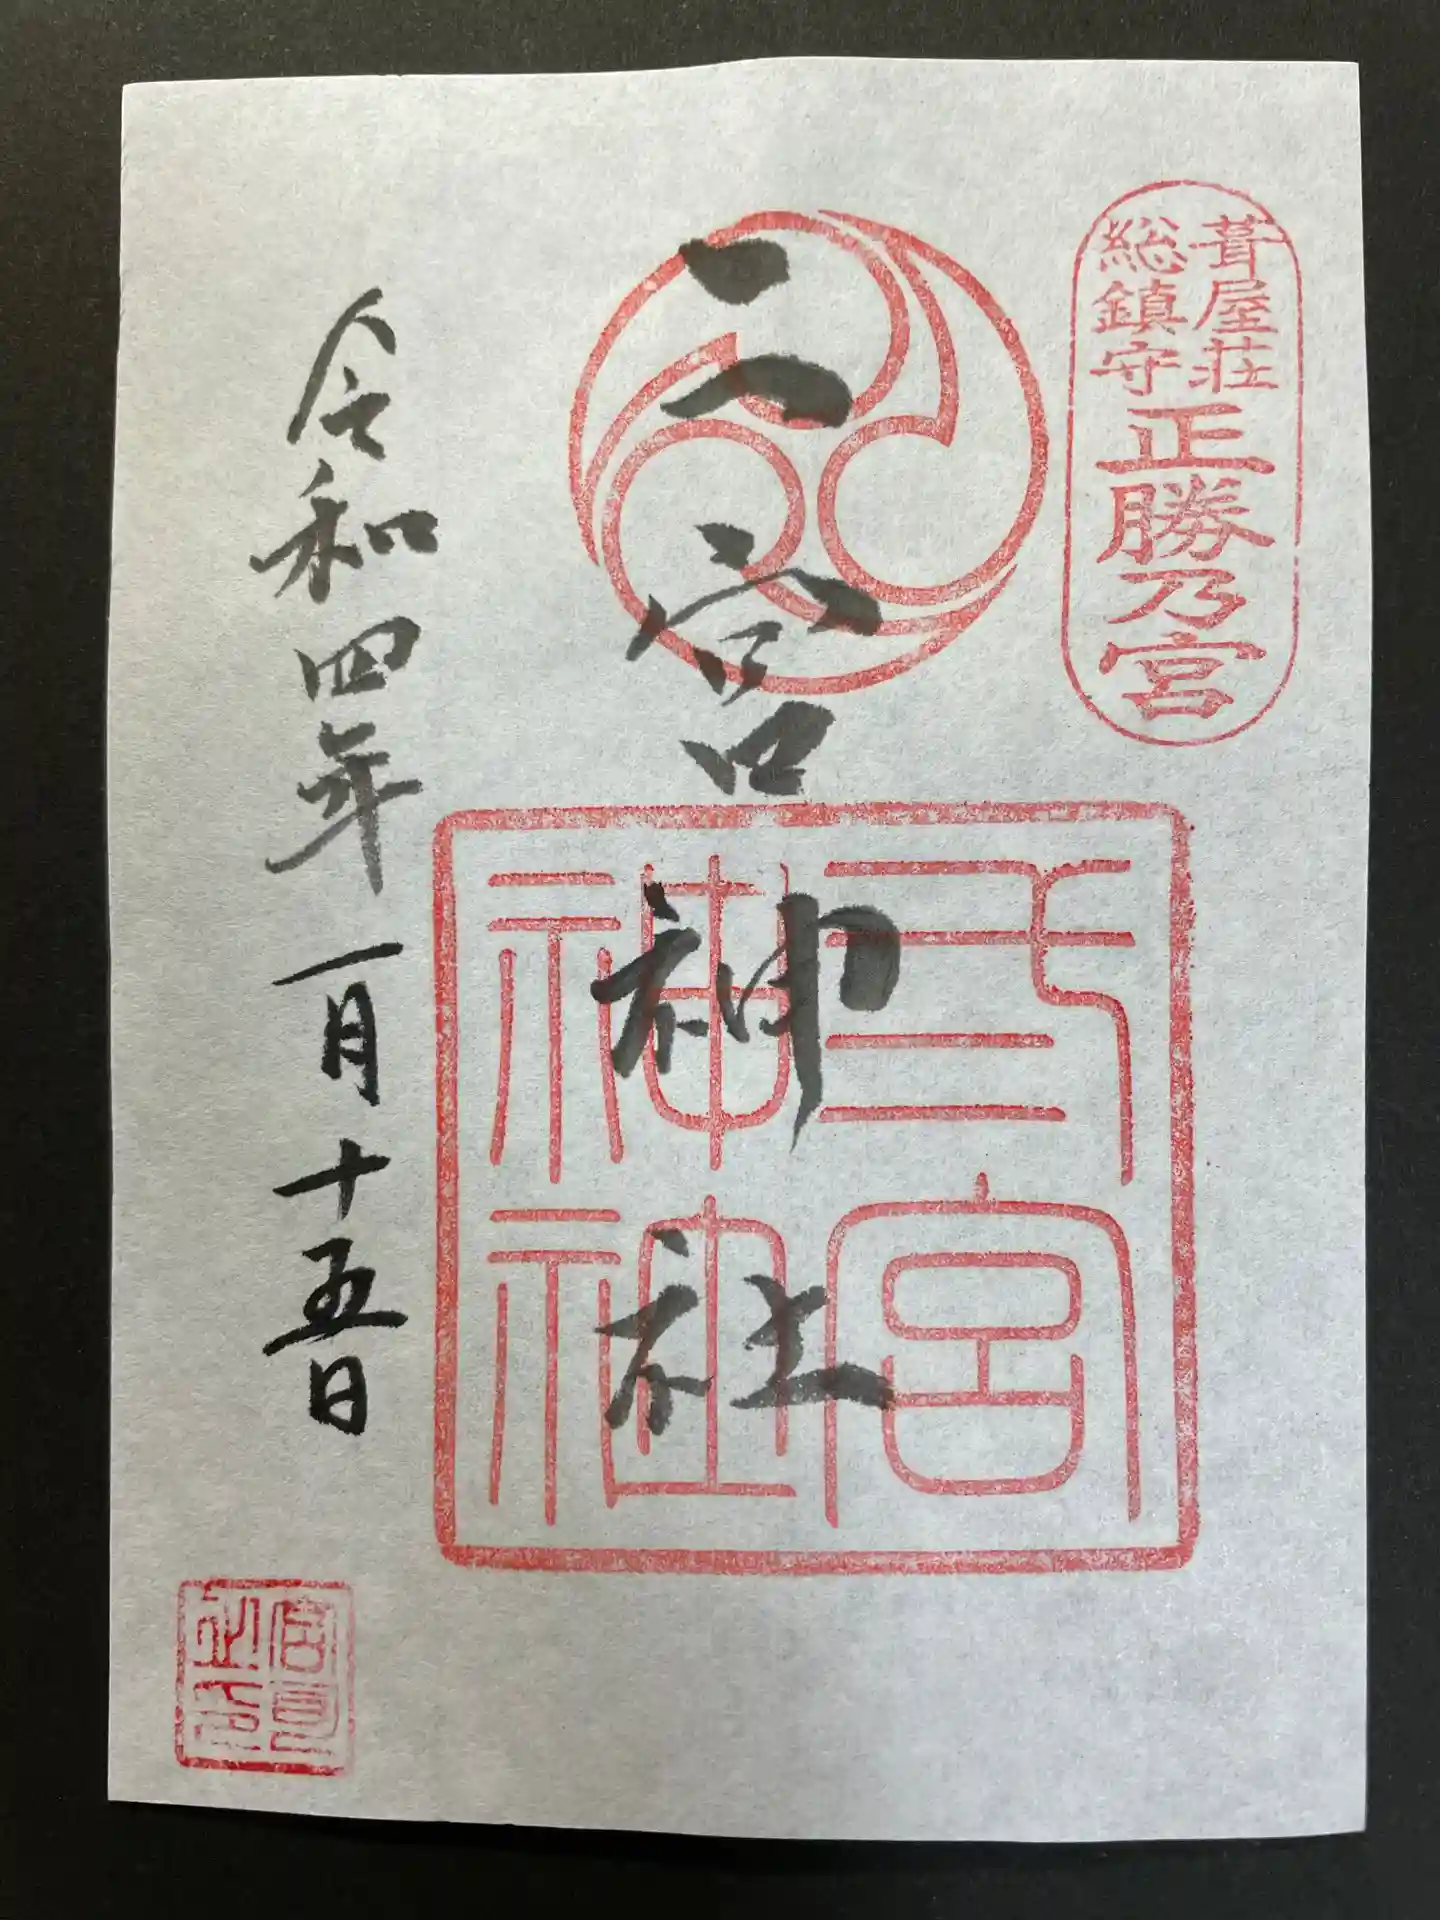 葺屋荘
総鎮守
正勝乃宮
二宮神社
弍宮
神社
令和四年一月十五日
宮司
之印